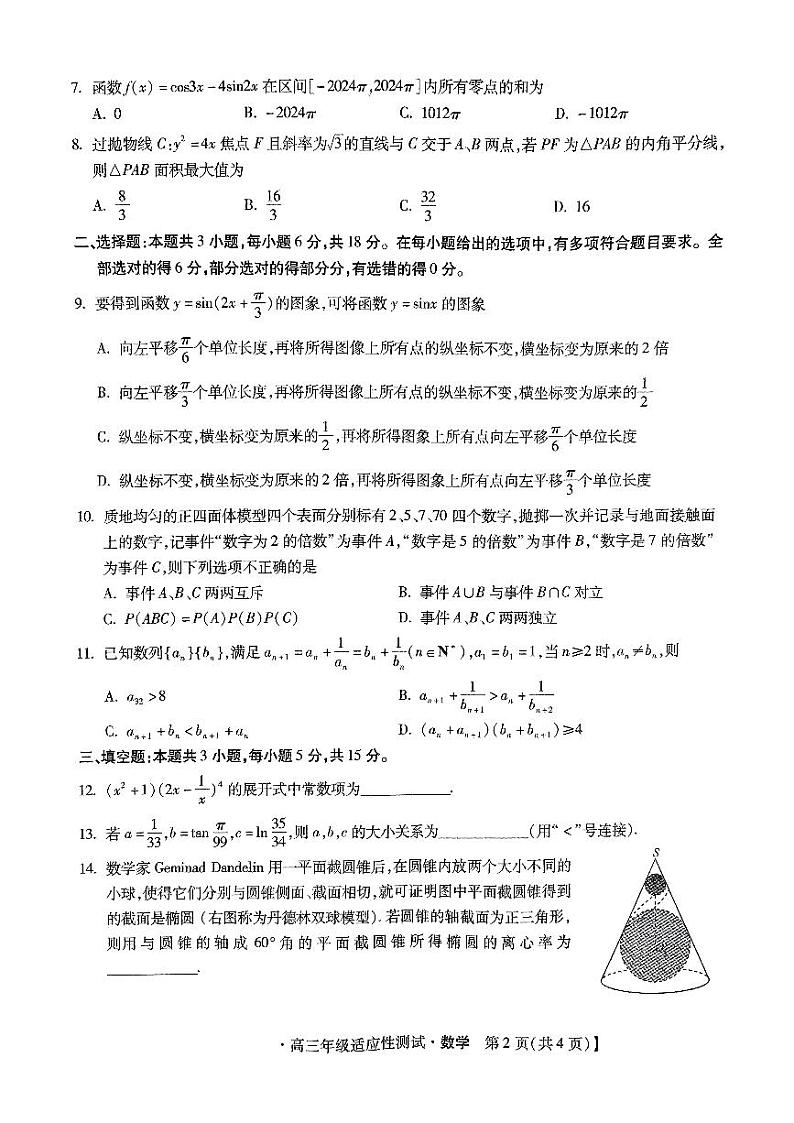 7. 函数f(x)=cos3x-4sin2x在区间[-2024π,2024π]内所有零点的和为
A. 0 B. -2024π C. 1012π D. -1012π
8. 过抛物线C:y²=4x焦点F且斜率为√3的直线与C交于A、B两点,若PF为△PAB的内角平分线,
则△PAB面积最大值为
A. 8/3 B. 16/3 C. 32/3 D. 16
二、选择题:本题共3小题,每小题6分,共18分。在每小题给出的选项中,有多项符合题目要求。全
部选对的得6分,部分选对的得部分分,有选错的得0分。
9. 要得到函数y=sin(2x+π/3)的图象,可将函数y=sinx的图象
A. 向左平移π/6个单位长度,再将所得图像上所有点的纵坐标不变,横坐标变为原来的2倍
B. 向左平移π/3个单位长度,再将所得图象上所有点的纵坐标不变,横坐标变为原来的1/2
C. 纵坐标不变,横坐标变为原来的1/2,再将所得图象上所有点向左平移π/6个单位长度
D. 纵坐标不变,横坐标变为原来的2倍,再将所得图象上所有点向左平移π/3个单位长度
10. 质地均匀的正四面体模型四个表面分别标有2、5、7、70四个数字,抛掷一次并记录与地面接触面
上的数字,记事件“数字为2的倍数”为事件A,“数字是5的倍数”为事件B,“数字是7的倍数”
为事件C,则下列选项不正确的是
A. 事件A、B、C两两互斥 B. 事件A∪B与事件B∩C对立
C. P(ABC)=P(A)P(B)P(C) D. 事件A、B、C两两独立
11. 已知数列{aₙ}{bₙ},满足aₙ₊₁=aₙ+1/aₙ=bₙ+1/bₙ(n∈N*),a₁=b₁=1,当n≥2时,aₙ≠bₙ,则
A. a₃₂>8 B. aₙ₊₁+1/bₙ₊₁>aₙ+1/bₙ₊₂
C. aₙ₊₁+bₙ<bₙ₊₁+aₙ D. (aₙ+aₙ₊₁)(bₙ+bₙ₊₁)≥4
三、填空题:本题共3小题,每小题5分,共15分。
12. (x²+1)(2x-1/x)⁴的展开式中常数项为____________.
13. 若a=1/33,b=tanπ/99,c=ln35/34,则a,b,c的大小关系为____________(用“<”号连接).
14. 数学家Geminad Dandelin用一平面截圆锥后,在圆锥内放两个大小不同的
小球,使得它们分别与圆锥侧面、截面相切,就可证明图中平面截圆锥得到
的截面是椭圆(右图称为丹德林双球模型).若圆锥的轴截面为正三角形,
则用与圆锥的轴成60°角的平面截圆锥所得椭圆的离心率为
____________.
S
·高三年级适应性测试·数学 第2页(共4页)】